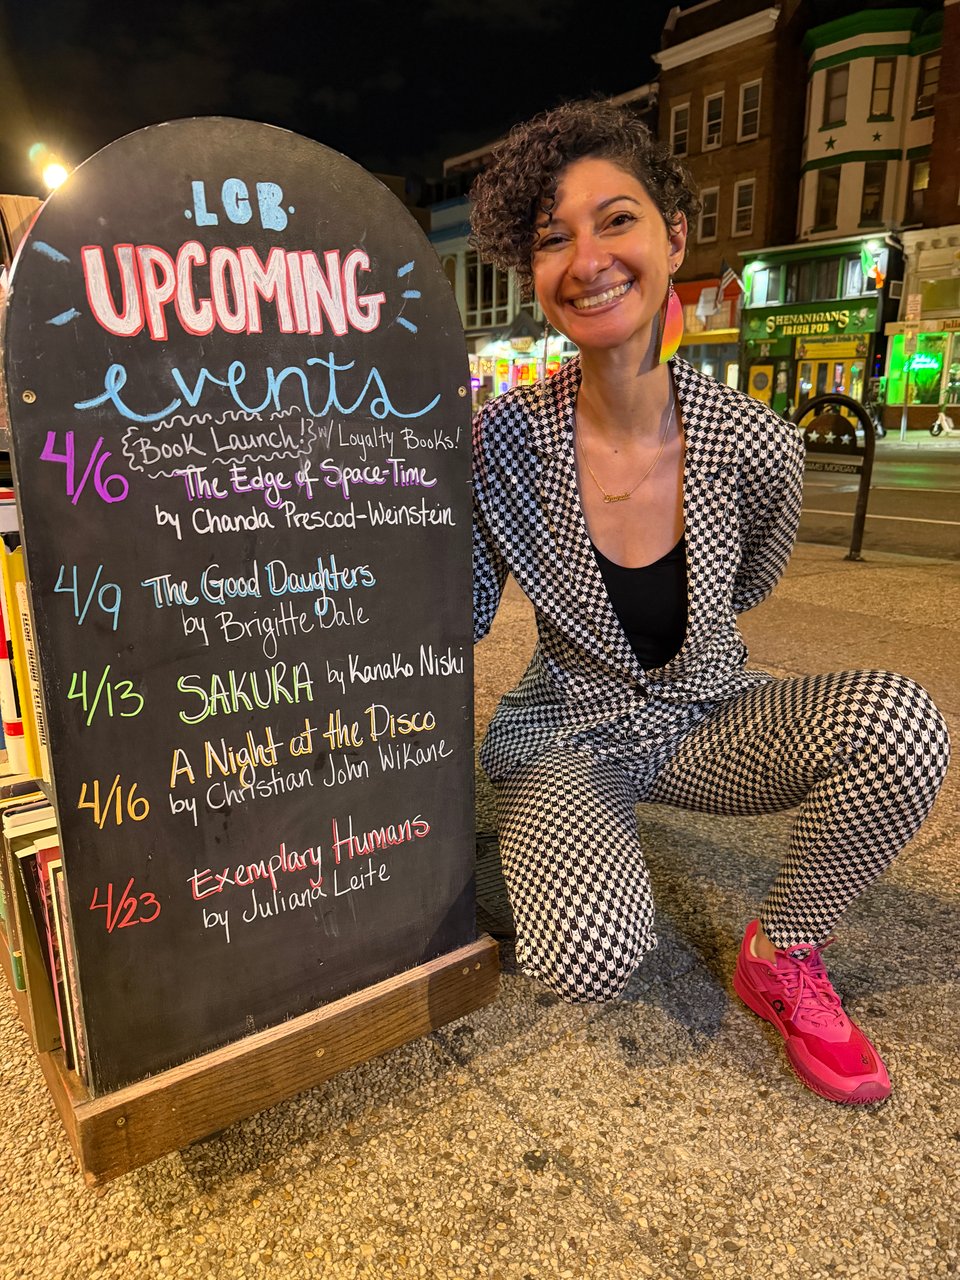 ·LCB·
UPCOMING
events
4/6 Book Launch! w/ Loyalty Books!
The Edge of Space-Time
by Chanda Prescod-Weinstein
4/9 The Good Daughters
by Brigitte Dale
4/13 SAKURA by Kanako Nishi
4/16 A Night at the Disco
by Christian John Wikane
4/23 Exemplary Humans
by Juliana Leite
SHENANIGANS
IRISH PUB
AMS MORGAN